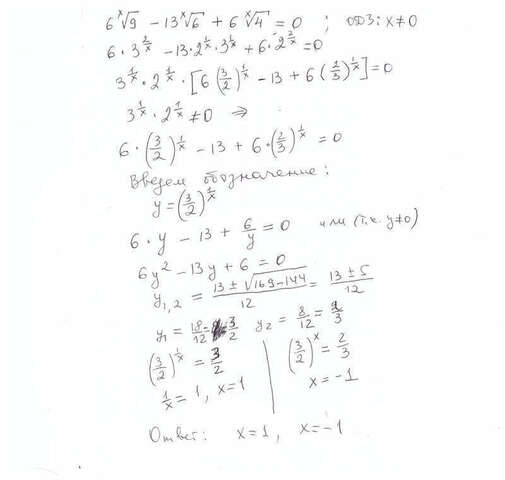 6 ˣ√9 − 13 ˣ√6 + 6 ˣ√4 = 0 ; ОДЗ: x≠0
6·3^(2/x) − 13·2^(1/x)·3^(1/x) + 6·2^(2/x) = 0
3^(1/x)·2^(1/x)·[6(3/2)^(1/x) − 13 + 6(2/3)^(1/x)] = 0
3^(1/x)·2^(1/x) ≠ 0 ⇒
6·(3/2)^(1/x) − 13 + 6·(2/3)^(1/x) = 0
Введем обозначение:
y = (3/2)^(1/x)
6·y − 13 + 6/y = 0 или (т.к. y≠0)
6y² − 13y + 6 = 0
y₁,₂ = (13 ± √(169−144))/12 = (13 ± 5)/12
y₁ = 18/12 = 3/2 y₂ = 8/12 = 2/3
(3/2)^(1/x) = 3/2 | (3/2)^x = 2/3
1/x = 1, x=1 | x = −1
Ответ: x=1, x=−1